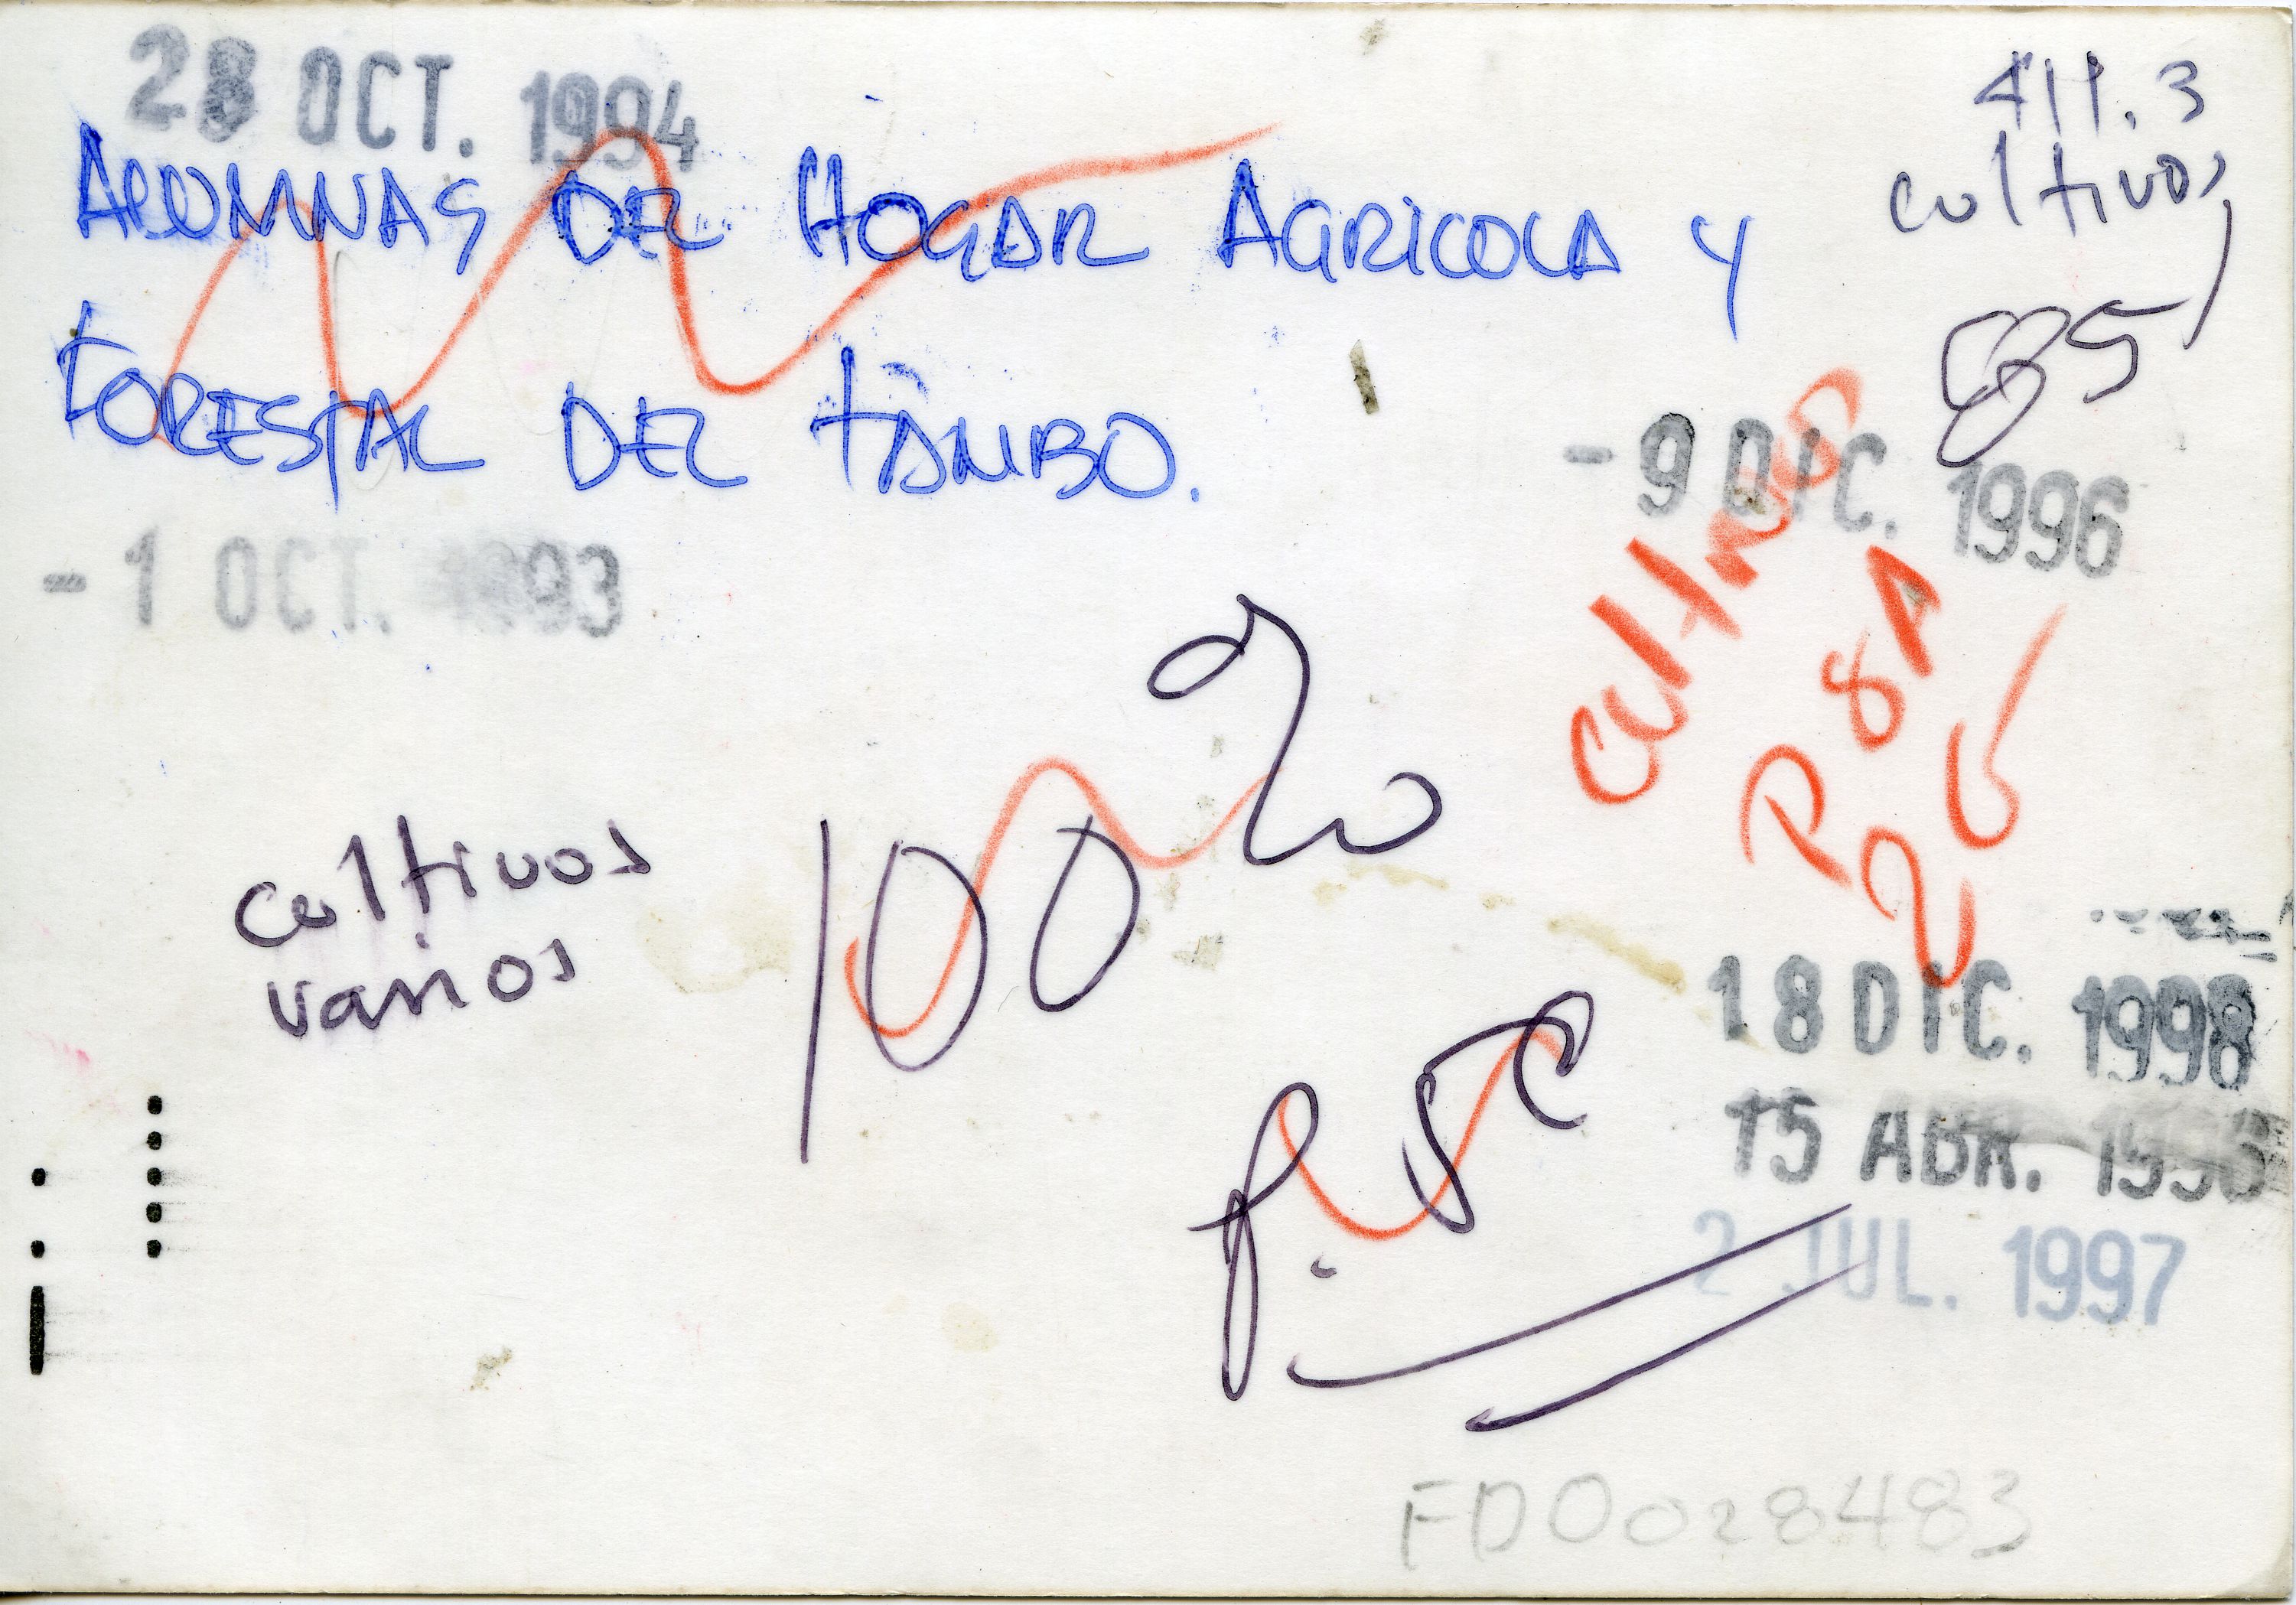 28 OCT. 1994
411.3
cultivos
ALUMNAS DEL HOGAR AGRICOLA Y
FORESTAL DEL TAMBO.
- 9 DIC. 1996
- 1 OCT. 1993
cultivos
P 8A
cultivos
varios
100%
18 DIC. 1998
15 ABR.
2 JUL. 1997
FD0028483